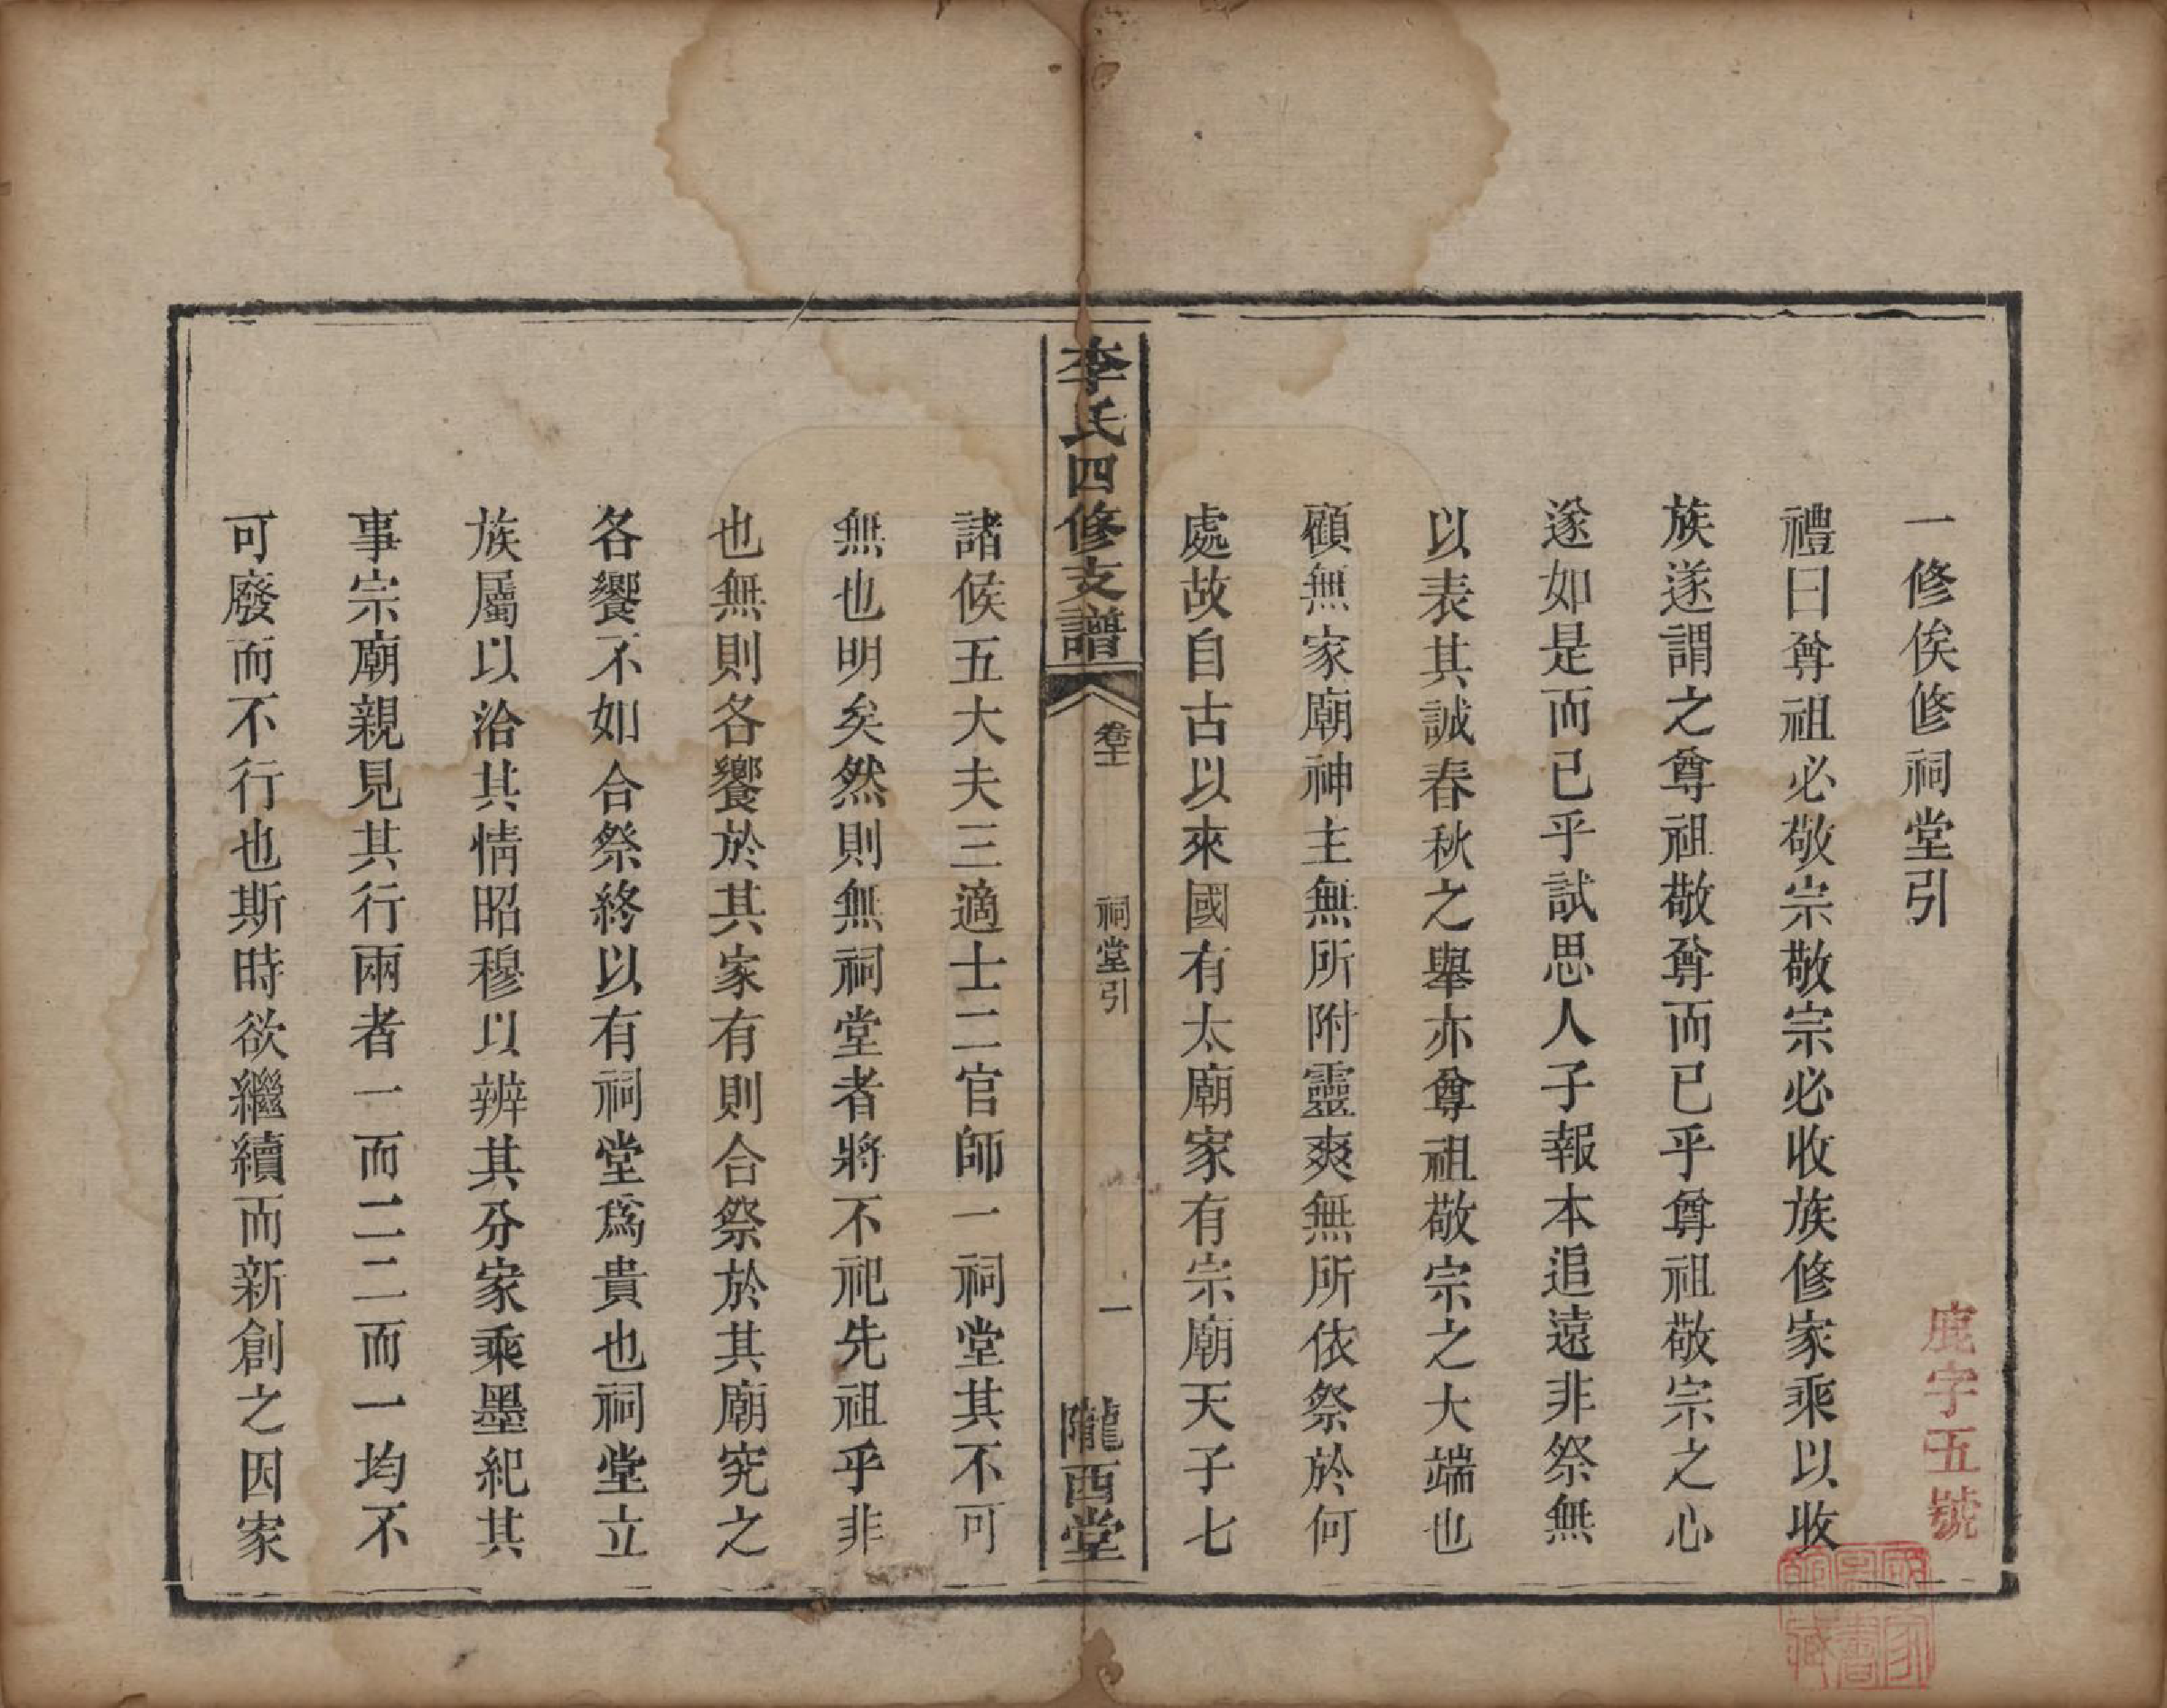 一修俟修祠堂引
禮曰尊祖必敬宗敬宗必收族修家乘以收
族遂謂之尊祖敬尊而已乎尊祖敬宗之心
遂如是而已乎試思人子報本追遠非祭無
以表其誠春秋之舉亦尊祖敬宗之大端也
顧無家廟神主無所附靈爽無所依祭於何
處故自古以來國有太廟家有宗廟天子七
李氏四修支譜
卷十一
祠堂引
一
隴西堂
諸侯五大夫三適士二官師一祠堂其不可
無也明矣然則無祠堂者將不祀先祖乎非
也無則各饗於其家有則合祭於其廟究之
各饗不如合祭終以有祠堂爲貴也祠堂立
族屬以洽其情昭穆以辨其分家乘墨紀其
事宗廟親見其行兩者一而二二而一均不
可廢而不行也斯時欲繼續而新創之因家
鹿字五號
國家圖書館藏